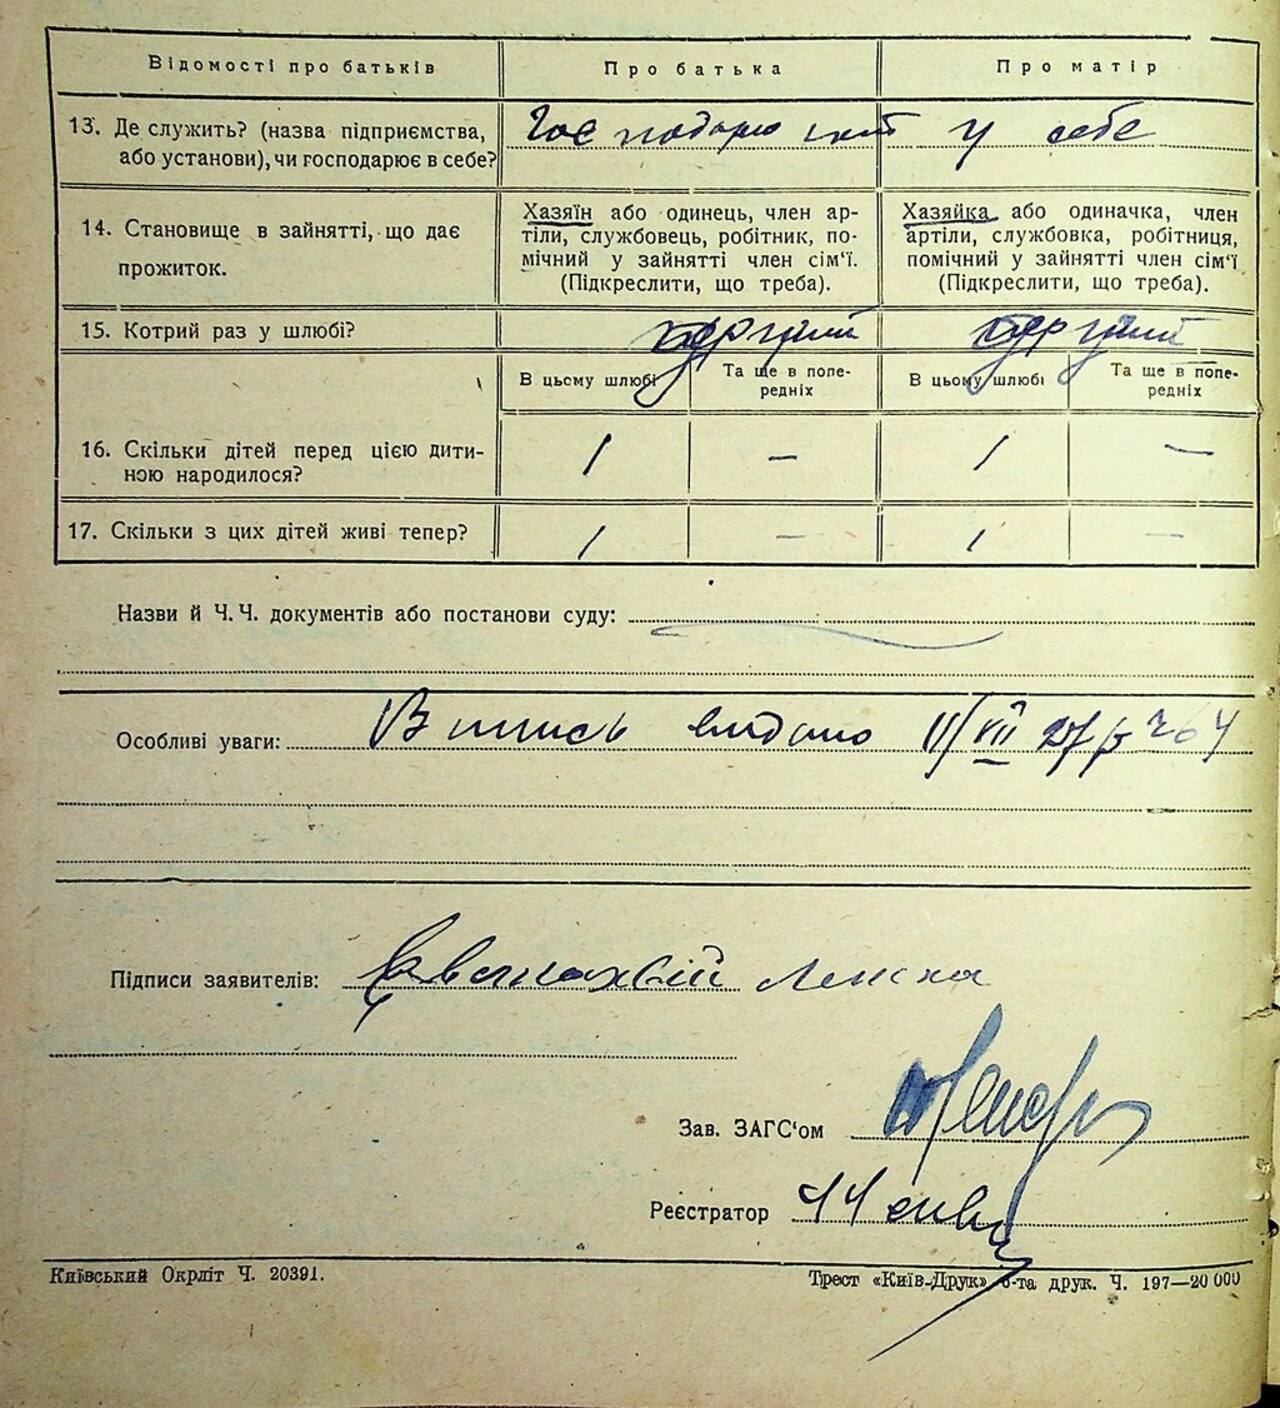 Відомості про батьків Про батька Про матір
13. Де служить? (назва підприємства, або установи), чи господарює в себе?
у себе
14. Становище в зайнятті, що дає прожиток.
Хазяїн або одинець, член ар-
тіли, службовець, робітник, по-
мічний у зайнятті член сім‘ї.
(Підкреслити, що треба).
Хазяйка або одиначка, член
артіли, службовка, робітниця,
помічний у зайнятті член сім‘ї
(Підкреслити, що треба).
15. Котрий раз у шлюбі?
В цьому шлюбі
Та ще в попе-
редніх
В цьому шлюбі
Та ще в попе-
редніх
16. Скільки дітей перед цією дити-
ною народилося?
1 — 1 —
17. Скільки з цих дітей живі тепер?
1 — 1 —
Назви й Ч.Ч. документів або постанови суду:
Особливі уваги: Випись видано
Підписи заявителів:
Зав. ЗАГС‘ом
Реєстратор
Київський Окрліт Ч. 20391.
Трест «Київ-Друк» 6-та друк. Ч. 197—20 000